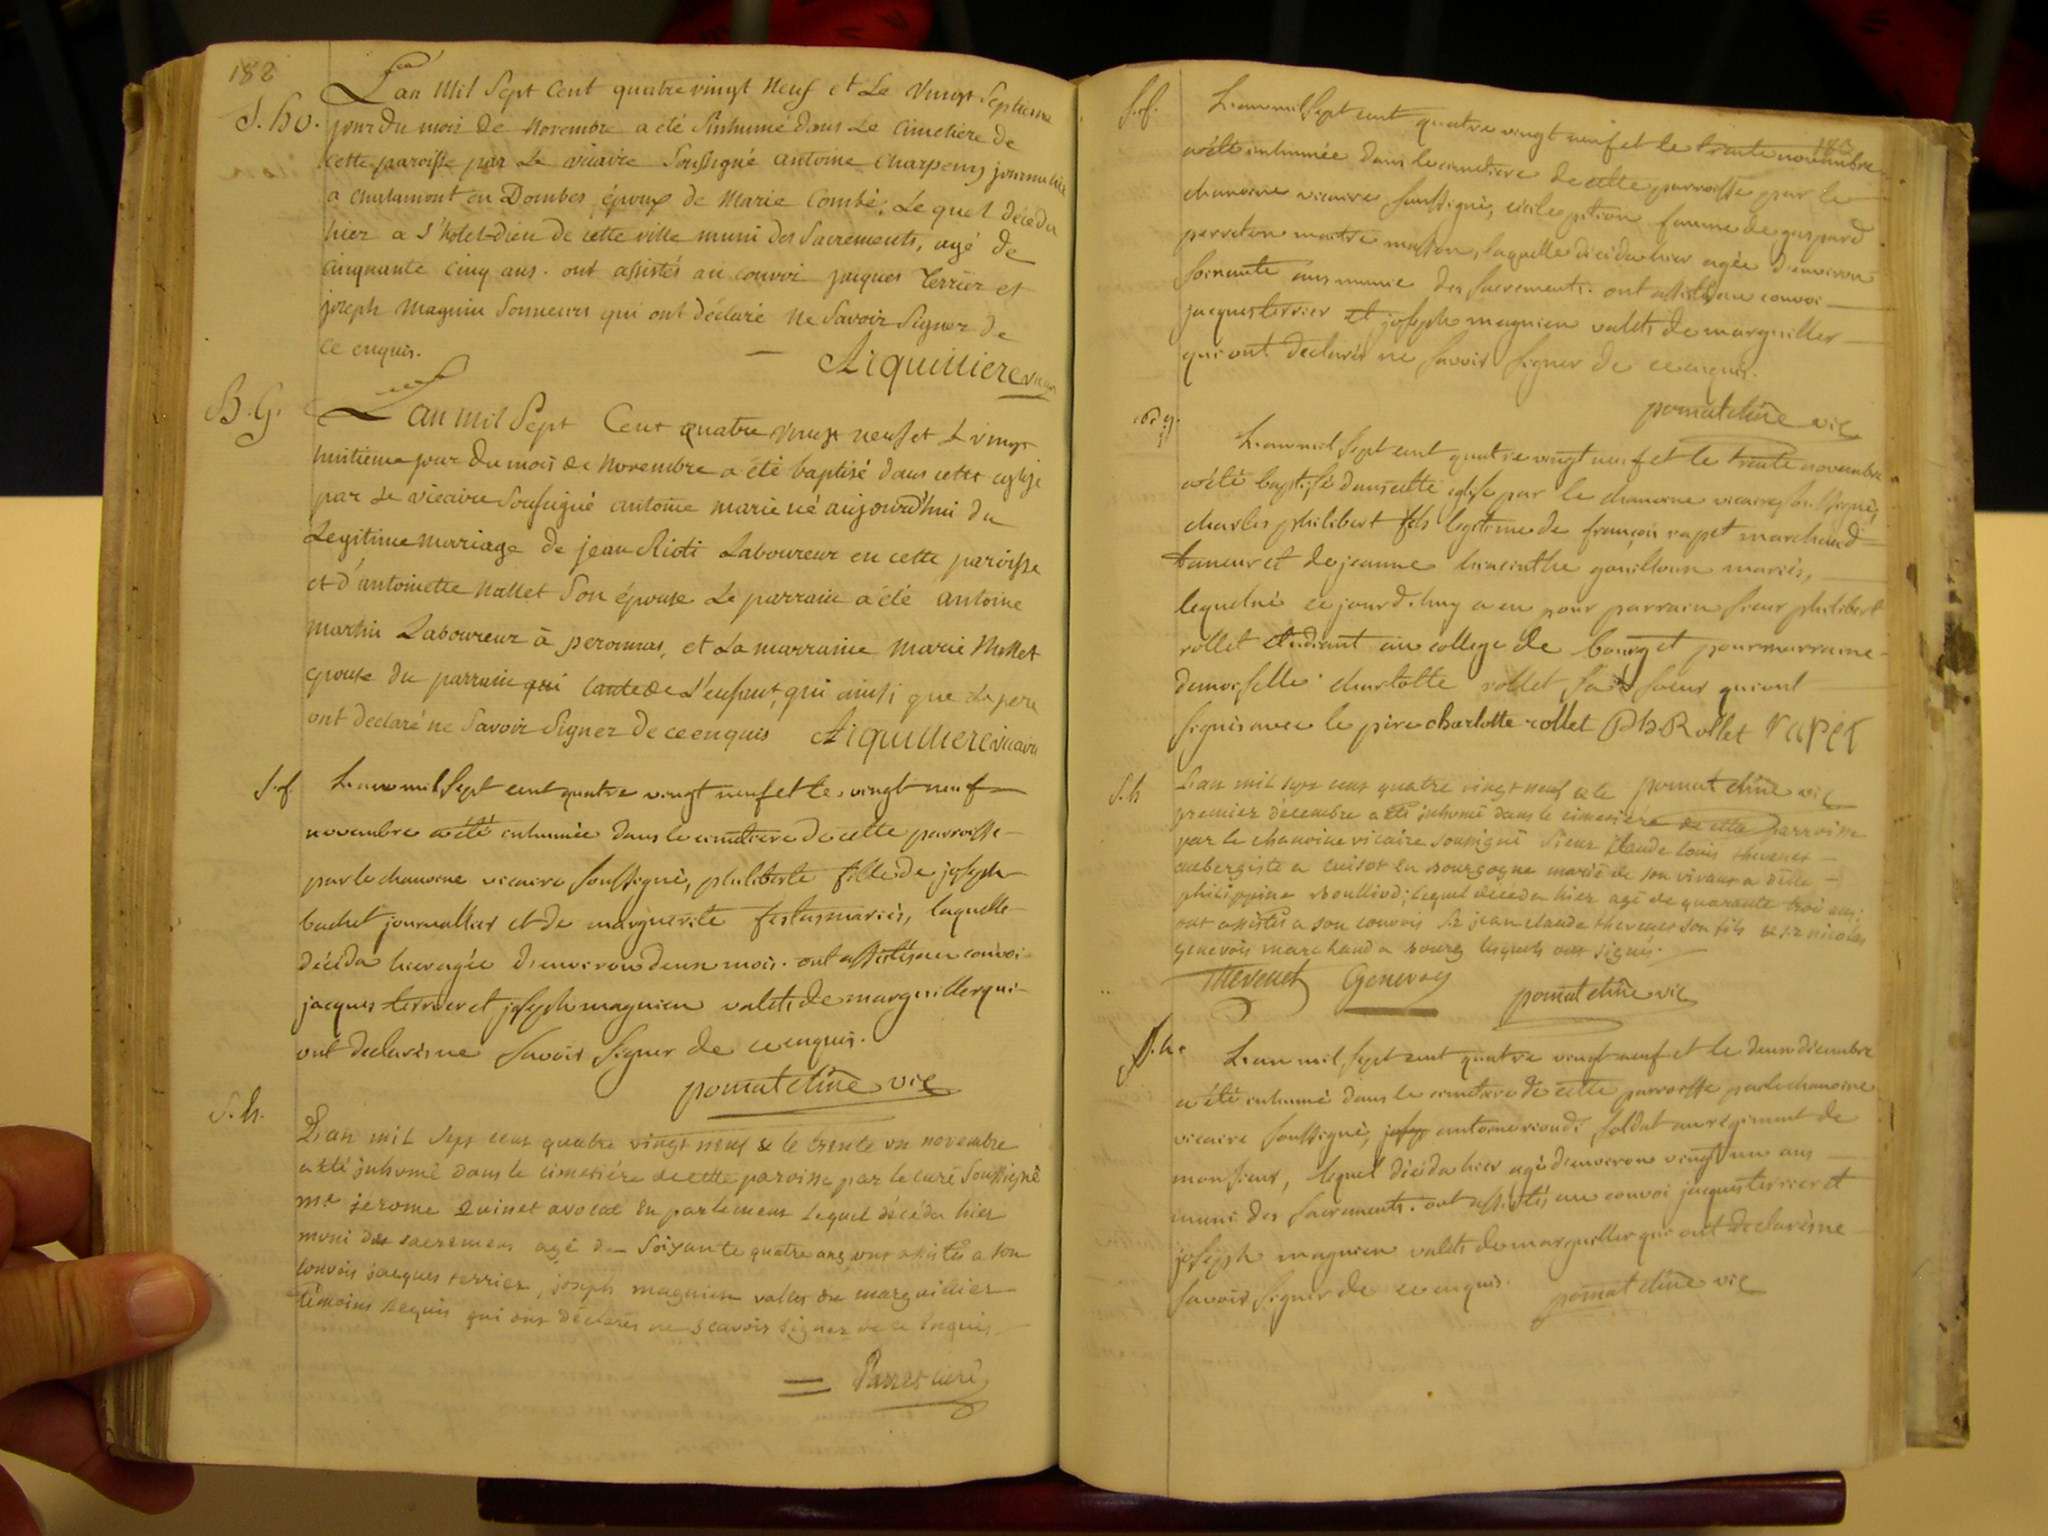 182
S. ho. L'an Mil Sept Cent quatre vingt Neuf et Le Vingt Septieme
jour du mois de Novembre a été Inhumé dans Le Cimetiere de
cette paroisse par Le vicaire Soussigné antoine Charpeny journalier
a Chalamont en Dombes, époux de Marie Combé, Lequel décéda
hier a l'hotel-dieu de cette ville muni des Sacrements, agé de
cinquante cinq ans. ont assistés au convoi jacques Terrier et
joseph Magnin Sonneurs qui ont déclaré ne Savoir Signer de
ce enquis.
Arquilliere vicaire
B. G. L'an mil Sept Cent quatre vingt neuf et L vingt
huitieme jour du mois de Novembre a été baptisé dans cette eglise
par Le vicaire Soussigné antoine marie né aujourd'hui du
Legitime mariage de jean Laboureur en cette paroisse
et d'antoinette Mallet Son épouse Le parrain a été antoine
Martin Laboureur à peronnas, et La marraine Marie Mallet
epouse du parrain qui tante de L'enfant, qui ainsi que Le pere
ont declaré ne Savoir Signer de ce enquis Arquilliere vicaire
S. f. L'an mil Sept cent quatre vingt neuf et le vingt neuf
novembre a été inhumée dans le cimetiere de cette parroisse
par le chanoine vicaire soussigné, philiberte fille de joseph
bachet journallier et de marguerite festas mariés, laquelle
décéda hier agée d'environ deux mois. ont assistés au convoi
jacques terrier et joseph magnien valets de marguiller qui
ont declarés ne savoir signer de ce enquis.
pomatchîne vic
S. h. L'an mil sept cens quatre vingt neuf & le trente un novembre
a été inhumé dans le cimetiére de cette paroisse par le curé Soussigné
Me jerome Quinet avocat en parlement Lequel décéda hier
muni des sacremens agé de Soixante quatre ans ont assistés a son
convois jacques terrier, joseph magnien vallets de marguillier
témoins requis qui ont déclarés ne scavoir signer de ce enquis
curé
S. f. L'an mil Sept cent quatre vingt neuf et le trente novembre
a été inhumée dans le cimetiere de cette parroisse par le
chanoine vicaire soussigné, cécile pition femme de gaspard
perreton maitre masson, laquelle décéda hier agée d'environ
soixante ans munie des sacrements. ont assistés au convoi
jacques terrier et joseph magnien valets de marguiller
qui ont declarés ne savoir signer de ce enquis.
pomatchîne vic
B. g. L'an mil Sept cent quatre vingt neuf et le trente novembre
a été baptisé dans cette eglise par le chanoine vicaire soussigné,
charles philibert fils legitime de françois rapet marchand
tanneur et de jeanne hiacinthe gouilloux mariés,
lequel né ce jourd'huy a eu pour parrain sieur philibert
rollet etudiant au college de bourg et pour marraine
demoiselle charlotte rollet sa soeur qui ont
signés avec le père charlotte rollet PhRollet rapet
pomatchîne vic
S. h. L'an mil sept cens quatre vingt neuf & le
premier décembre a été inhumé dans le cimetiére de cette parroisse
par le chanoine vicaire soussigné Sieur claude louis thevenet
aubergiste a cuisot en Bourgogne marié de son vivant a délle
philippine Boulliod; lequel décéda hier agé de quarante trois ans;
ont assistés a son convois Sr jean claude thevenet son fils & Sr nicolas
genevois marchand a bourg lesquels ont signés.
Thevenet Genevoy
pomatchîne vic
S. h. L'an mil sept cent quatre vingt neuf et le deux décembre
a été inhumé dans le cimetiere de cette parroisse par le chanoine
vicaire soussigné, antoine rioudi soldat au régiment de
monsieur, lequel décéda hier agé d'environ vingt un ans
muni des sacrements. ont assistés au convoi jacques terrier et
joseph magnien valets de marguiller qui ont declarés ne
savoir signer de ce enquis.
pomatchîne vic